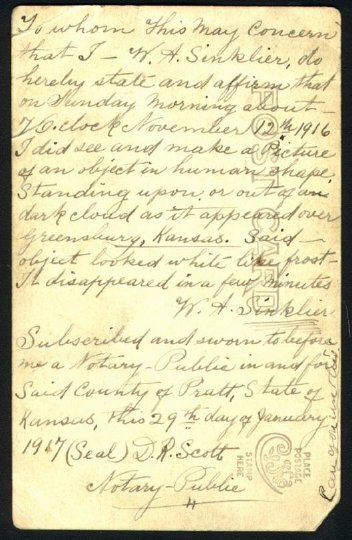 To whom This May Concern
that I - W. A. Sinklier, do
hereby state and affirm that
on Sunday Morning about -
7 O.clock November 12th 1916
I did see and make a Picture
of an object in human shape,
Standing upon or out of an
dark cloud as it appeared over
Greensburg, Kansas. Said -
object looked white like frost -
It disappeared in a few minutes
W. A. Sinklier
Subscribed and sworn to before
me a Notary-Public in and for
Said County of Pratt, State of
Kansas, this 29th day of January
1917 (Seal) D. R. Scott
Notary-Public
POST CARD
PLACE
POSTAGE
STAMP
HERE